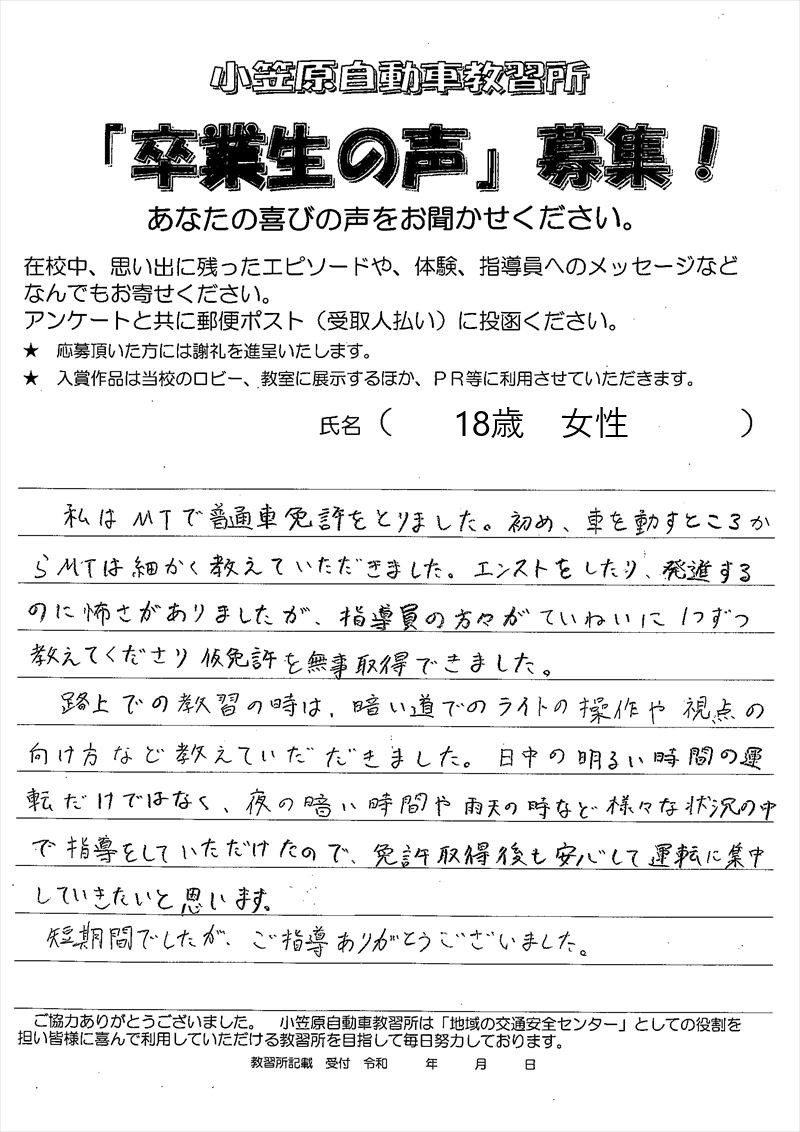 小笠原自動車教習所
「卒業生の声」募集！
あなたの喜びの声をお聞かせください。
在校中、思い出に残ったエピソードや、体験、指導員へのメッセージなど
なんでもお寄せください。
アンケートと共に郵便ポスト（受取人払い）に投函ください。
★ 応募頂いた方には謝礼を進呈いたします。
★ 入賞作品は当校のロビー、教室に展示するほか、ＰＲ等に利用させていただきます。
氏名（ 18歳 女性 ）
私はMTで普通車免許をとりました。初め、車を動すところか
らMTは細かく教えていただきました。エンストをしたり、発進する
のに怖さがありましたが、指導員の方々がていねいに1つずつ
教えてくださり仮免許を無事取得できました。
路上での教習の時は、暗い道でのライトの操作や視点の
向け方など教えていだだきました。日中の明るい時間の運
転だけではなく、夜の暗い時間や雨天の時など様々な状況の中
で指導をしていただけたので、免許取得後も安心して運転に集中
していきたいと思います。
短期間でしたが、ご指導ありがとうございました。
ご協力ありがとうございました。 小笠原自動車教習所は「地域の交通安全センター」としての役割を
担い皆様に喜んで利用していただける教習所を目指して毎日努力しております。
教習所記載 受付 令和 年 月 日